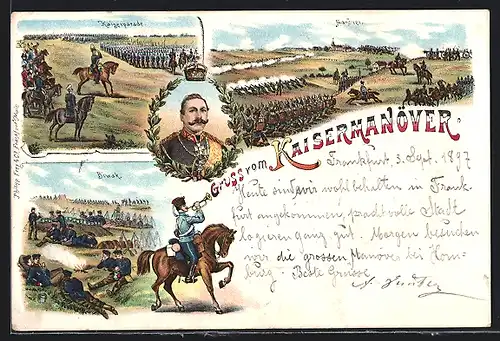 Kaiserparade.
Gruss vom KAISERMANÖVER.
Biwak.
Frankfurt 3. Sept. 1897
Heute sind wir wohlbehalten in Frank-
furt angekommen, prachtvolle Stadt
logieren ganz gut. Morgen besuchen
wir die grossen Manöver bei Hom-
burg - Beste Grüsse